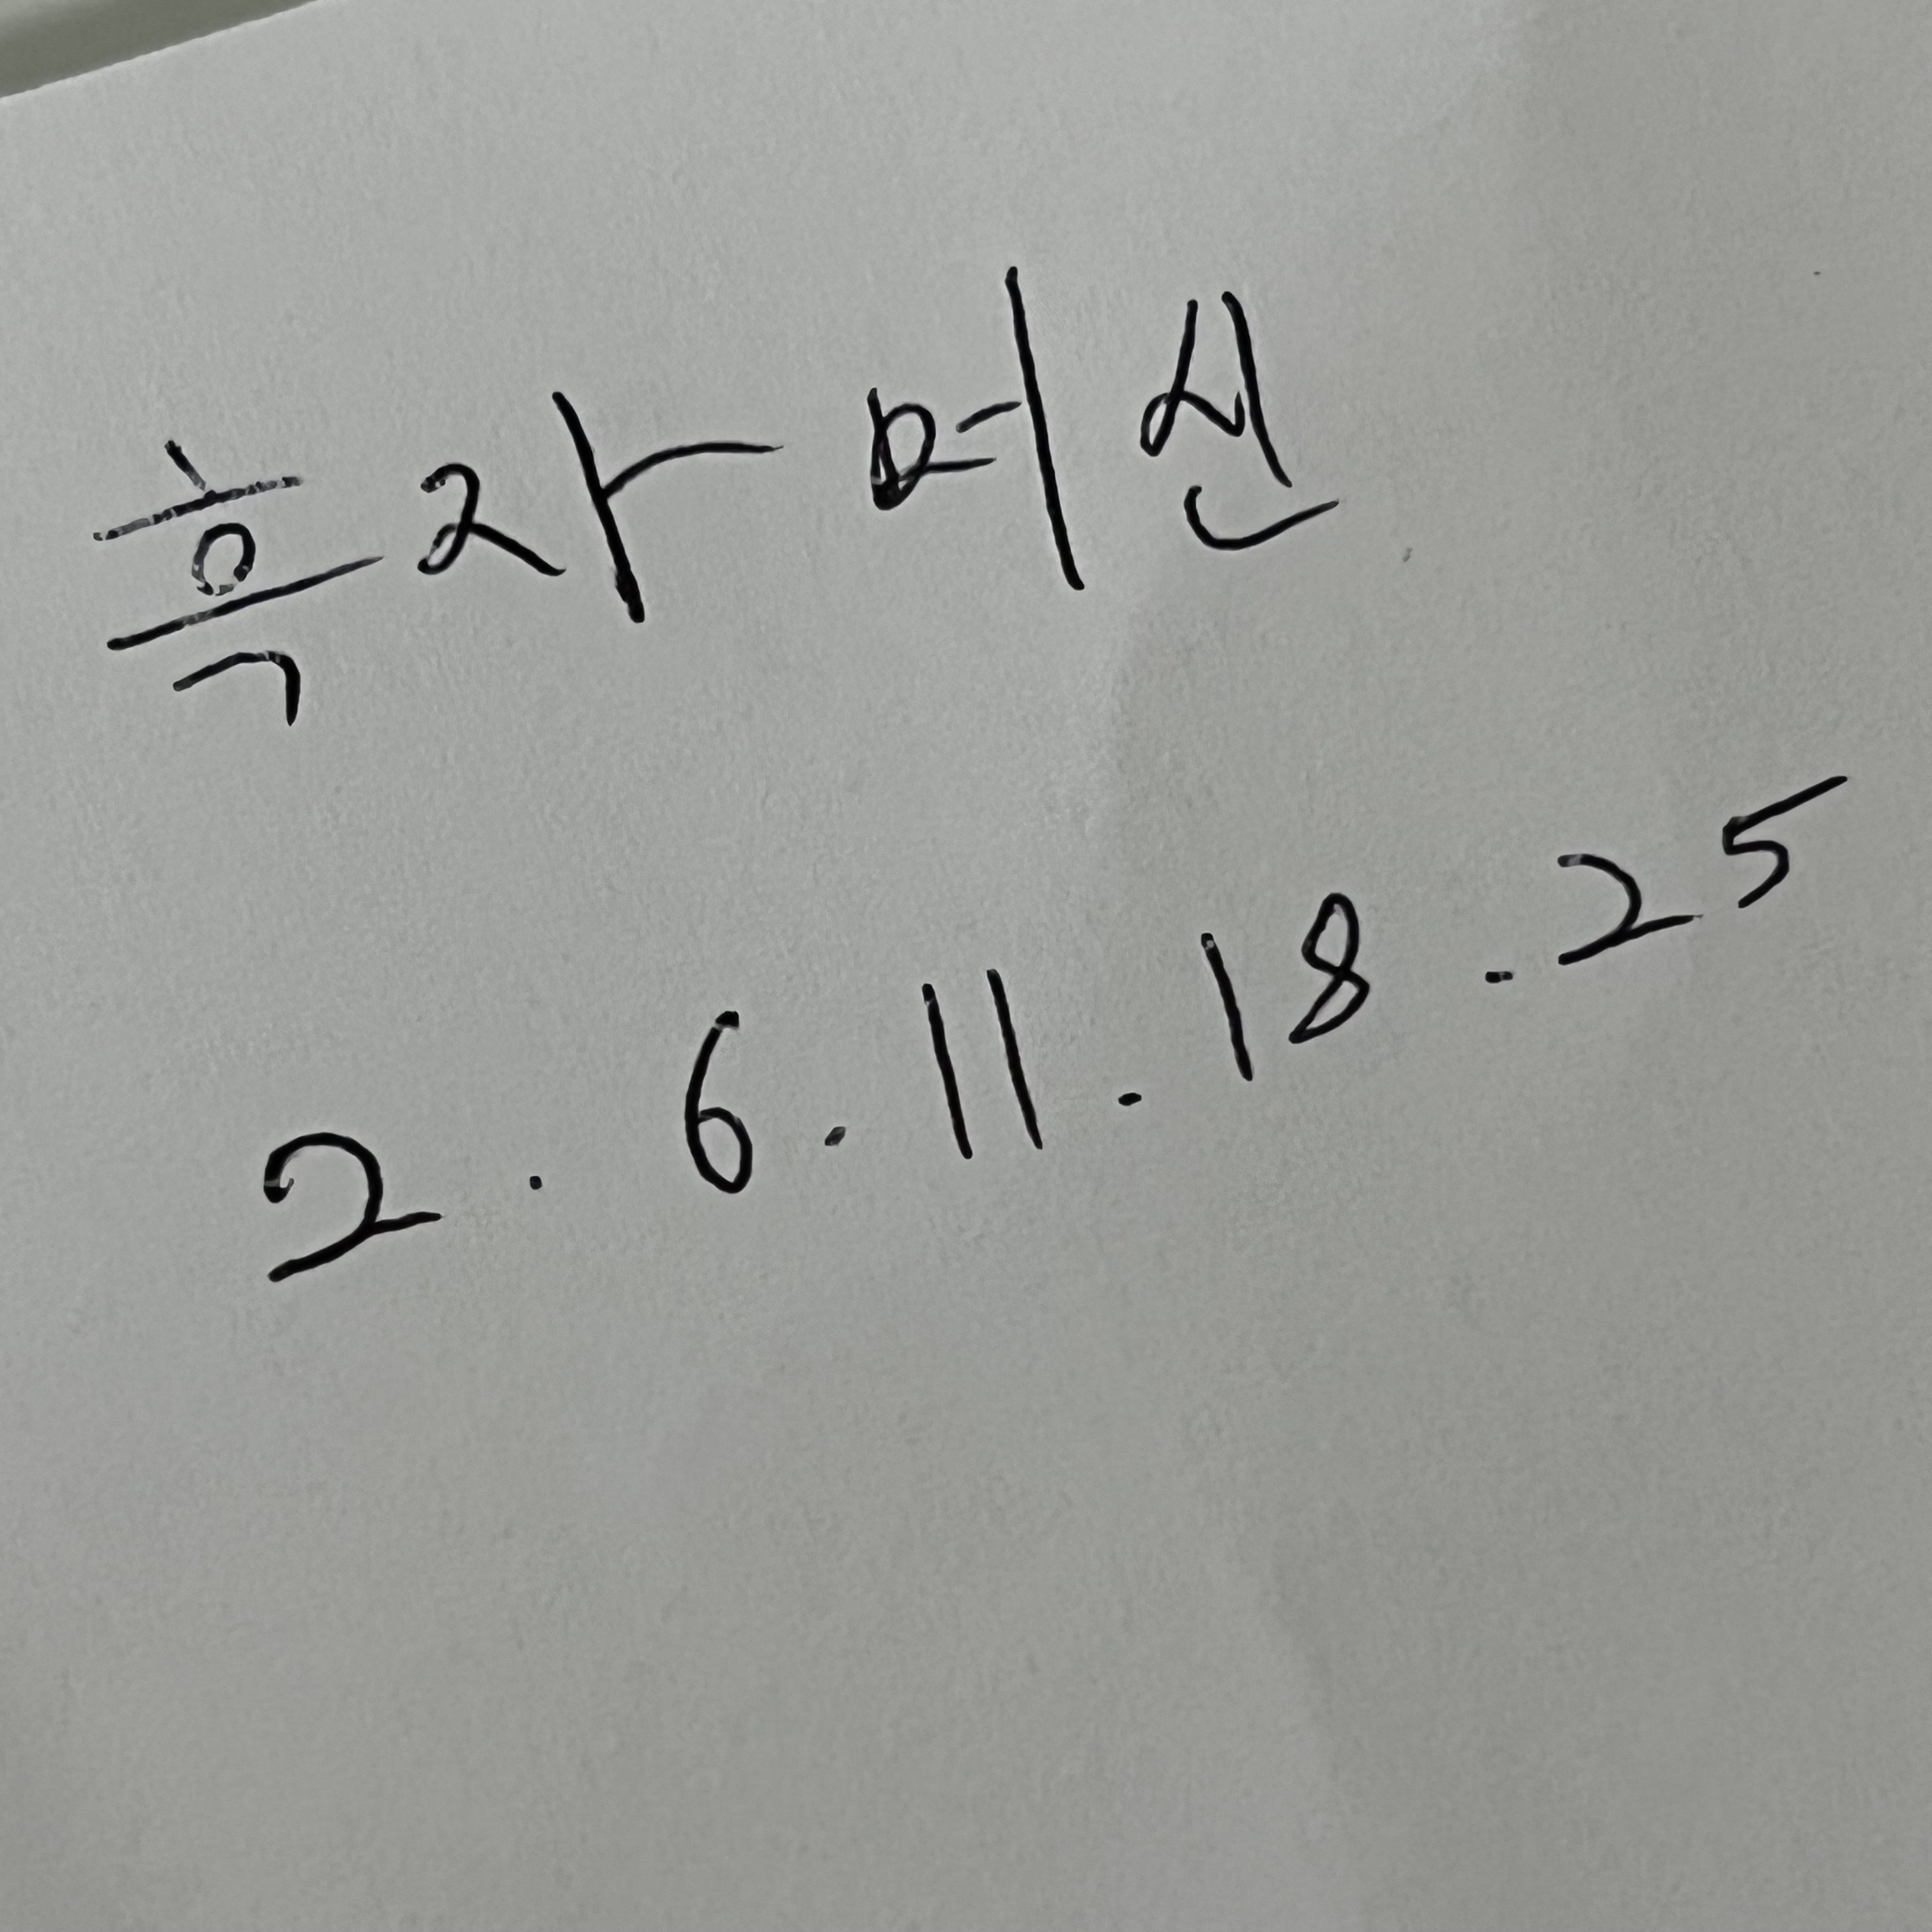 흑자 머신
2. 6. 11. 18. 25